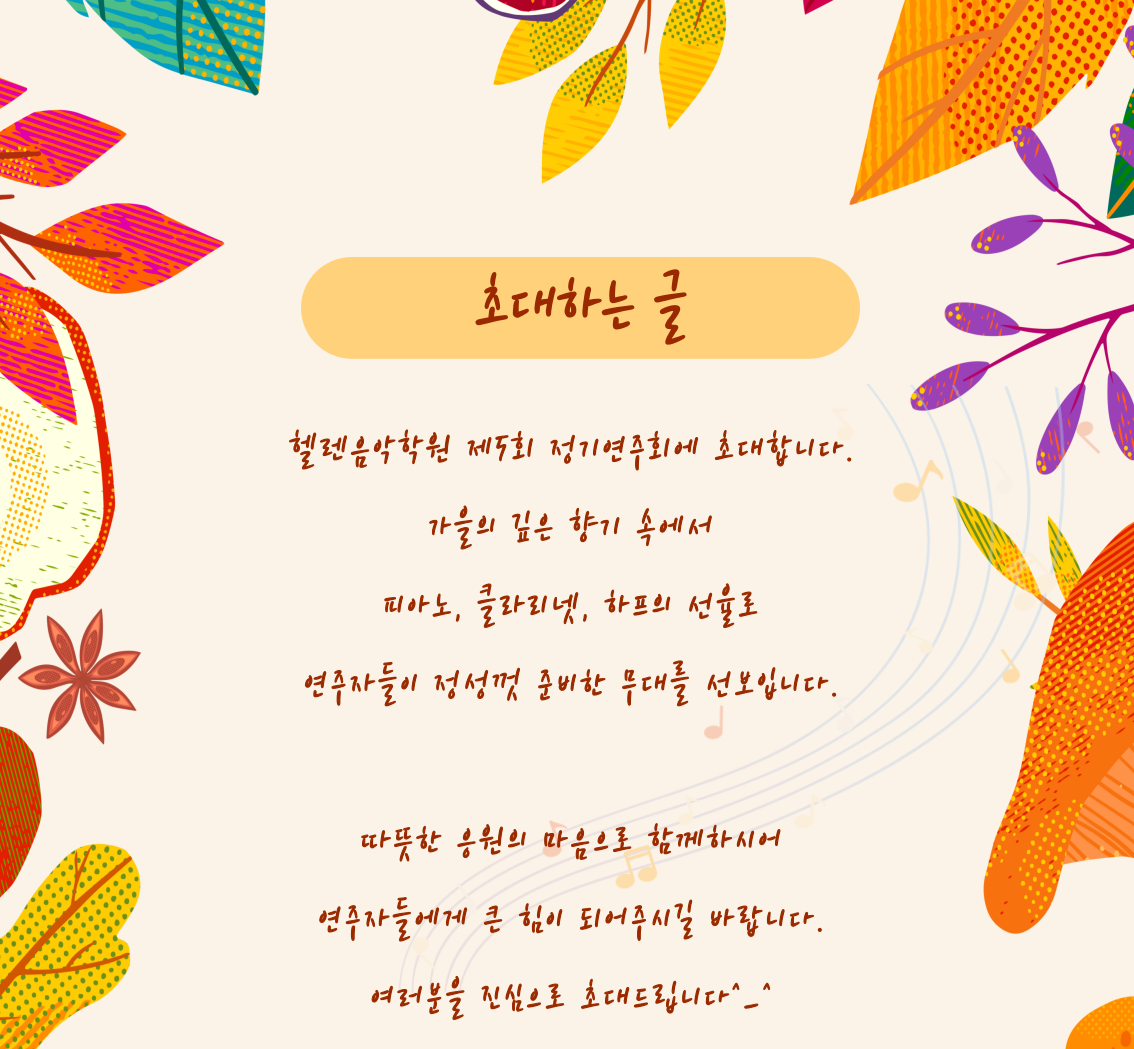 초대하는 글
헬렌음악학원 제5회 정기연주회에 초대합니다.
가을의 깊은 향기 속에서
피아노, 클라리넷, 하프의 선율로
연주자들이 정성껏 준비한 무대를 선보입니다.
따뜻한 응원의 마음으로 함께하시어
연주자들에게 큰 힘이 되어주시길 바랍니다.
여러분을 진심으로 초대드립니다^_^